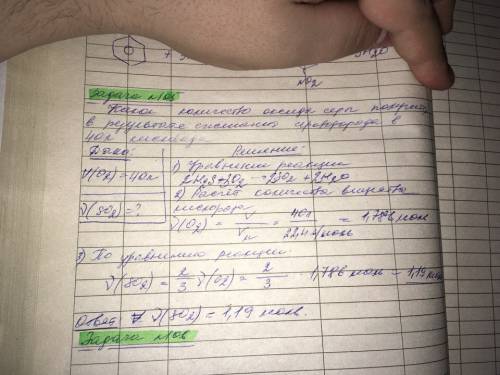 NO₂
Задача №105
Какое количество оксида серы получится
в результате сжигания сероводорода в
40л кислорода
Дано: Решение:
V(O₂)=40л 1) Уравнение реакции
2H₂S+3O₂ → 2SO₂+2H₂O
2) Расчёт количества вещества
кислорода
ν(SO₂)=?
ν(O₂) = V/Vм = 40л/22,4л/моль = 1,786 моль
3) По уравнению реакции:
ν(SO₂) = 2/3 ν(O₂) = 2/3 · 1,786 моль = 1,19 моль
Ответ ν(SO₂) = 1,19 моль.
Задача №106